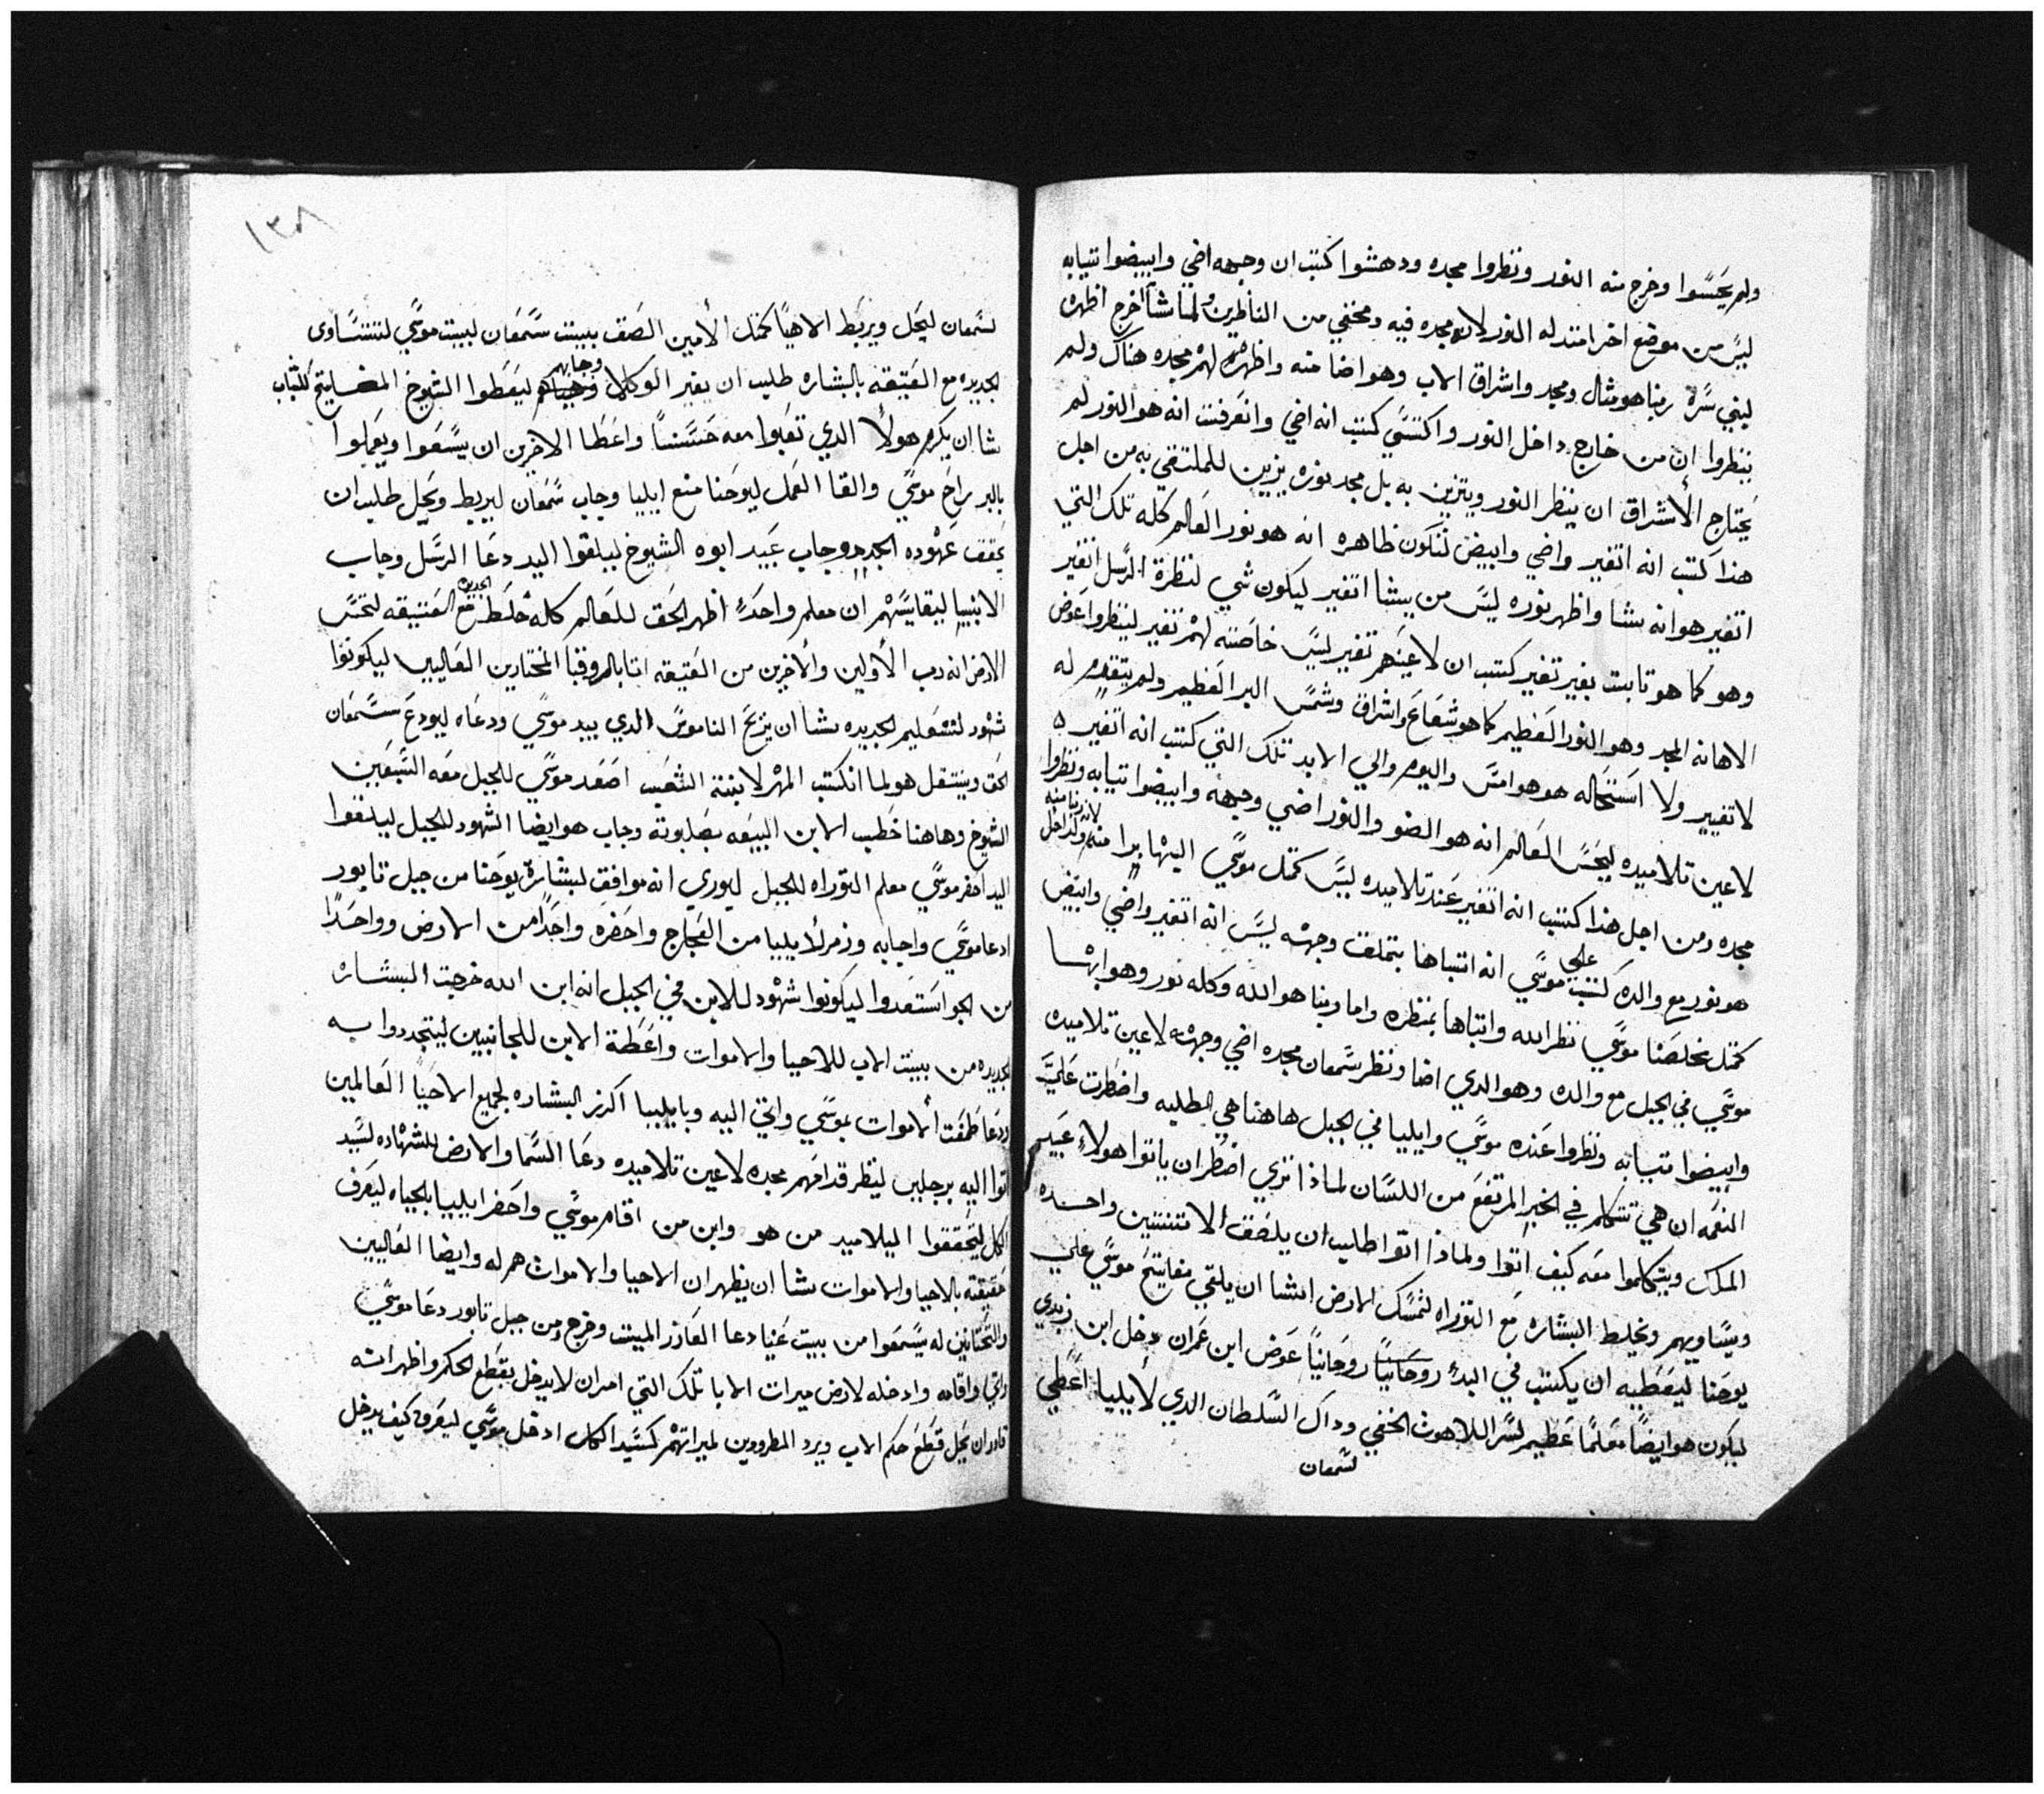 ولم يحسوا وخرج منه النور ونظروا مجده ودهشوا كتب ان وجهه اضي وابيضوا تيابه
ليس من موضع اخر امتد له النور لان مجده فيه ومخفي من الناظرين ولما شا اخرج اظهره
لبني سره ربنا هو مثال ومجد واشراق الاب وهو اضا منه واظهر لهم مجده هناك ولم
ينظروا ان من خارج داخل النور واكتسي كتب انه اضي وانعرفت انه هو النور لم
يحتاج الاشراق ان ينظر النور ويتزين به بل مجد نوره يزين للملتقي به من اجل
هذا كتب انه اتغير واضي وابيض لتكون ظاهره انه هو نور العالم كله تلك التي
اتغير هو انه بشا واظهر نوره ليس من بيشا اتغير ليكون شي لنظرة الرسل اتغير
وهو كما هو تابت بغير تغير كتب ان لاعينهم تغير ليس خاصته لهم تغير لينظروا عوض
الاهانه المجد وهو النور العظيم كما هو شعاع واشراق وشمس البر العظيم ولم يتقدم له
لا تغيير ولا استحاله هو هو امس واليوم والي الابد تلك التي كتب انه اتغير
لاعين تلاميده ليحس العالم انه هو الضو والنور اضي وجهه وابيضوا تيابه ونظروا
مجده ومن اجل هذا كتب انه اتغير عند تلاميده ليس كمتل موسي اليها برا منه ولداخل
لان ربنا منه
هو نور مع والده كتب علي موسي انه اتباها بتملقت وجهه ليس انه اتغير واضي وابيض
كمتل مخلصنا موسي نظر الله واتباها بمنظره واما ربنا هو الله وكله نور وهو ابهسا
موسي في الجبل مع والده وهو الدي اضا ونظر سمعان مجده اضي وجهه لاعين تلاميده
وابيضوا تيابه ونظروا عنده موسي وايليا في الجبل هاهنا هي الطلبه واضطرت علي
النعمه ان هي تتكلم في الخبر المرتفع من اللسان لماذا تري اضطر ان ياتوا هولاء عبيد
الملك ويتكلموا معه كيف اتوا ولماذا اتوا طلب ان يلصق الاتنتين واحده
ويساويهم ويخلط البشاره مع التوراه لتمسك الارض انشا ان يلقي مفاتيح موسي علي
يوحنا ليعطيه ان يكتب في البدء روحانيا روحانيا عوض ابن عمران دخل ابن زبدي
ليكون هو ايضا معلما عظيم لسر اللاهوت الخفي وداك السلطان الدي لايليا اعطي
لسمعان
١٣٨
لسمعان ليحل ويربط الاحيا كمتل الامين الصق ببيت سمعان لبيت موسي لتتساوى
الجديده مع العتيقه بالبشاره طلب ان يغير الوكلا وجابهم ليعطوا الشيوخ المفاتيح للشباب
شا ان يكرم هولا الدي تعبوا معه حسنا واعطا الاخرين ان يسعوا ويعملوا
بالبر راح موسي والقا العمل ليوحنا منع ايليا وجاب سمعان ليربط ويحل طلب ان
يحقق عهوده الجدد وجاب عبيد ابوه الشيوخ ليلقوا اليد دعا الرسل وجاب
الانبيا ليقايسهم ان معلم واحد اظهر الحق للعالم كله خلط الجديده مع العتيقه لتحس
الارض انه رب الاولين والاخرين من العتيقه اتا بالروقبا المختارين العاليين ليكونوا
شهود لتعليم الجديده بشا ان يزيح الناموس الدي بيد موسي ودعاه ليودع سمعان
الحق وينتقل هو لما انكتب المهر لابنة الشعب اصعد موسي للجبل معه السبعين
الشيوخ وهاهنا خطب الابن البيعه بصلبوته وجاب هو ايضا الشهود للجبل ليلتقوا
اليد احضر موسي معلم التوراه للجبل ليوري انه موافق لبشارة يوحنا من جبل تابور
ادعا موسي واجابه وزمر لايليا من العجاج واحضره واحدا من الارض وواحدا
من الجو استعدوا ليكونوا شهود للابن في الجبل انه ابن الله خرجت البشاره
الجديده من ببيت الاب للاحيا والاموات واعطة الابن للجانبين ليتجددوا به
دعا طغمت الاموات بموسي واتي اليه وبايليا اكرز البشاره لجميع الاحيا العالمين
اتوا اليه برجلين لينظر قدامهم مجده لاعين تلاميده دعا السما والارض للشهاده لسيد
الكل ليتحققوا التلاميد من هو وابن من اقام موسي واحضر ايليا بالحياه ليعرف
حقيقته بالاحيا والاموات بشا ان يظهر ان الاحيا والاموات هم له وايضا العاليين
والتحتانيين له يسمعوا من بيت عنيا دعا العازر الميت وخرج ومن جبل تابور دعا موسي
واتي واقامه وادخله لارض ميرات الابا تلك التي امر ان لا يدخل بقطع الحكم واظهر انه
قادر ان يحل قطع حكم الاب ويرد المطرودين لميراتهم كسيد الكل ادخل موسي ليعرف كيف يدخل